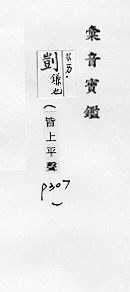 彙音寶鑑
剴 鎌也
(皆上平聲
p307)